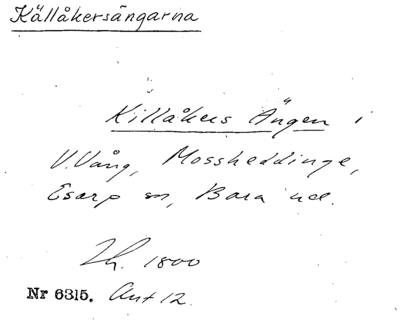 Källåkersängarna
Killåkers Ängen i
V. Vång, Mossheddinge,
Esarp sn, Bara hd.
1800
Nr 6315. Ant 12.